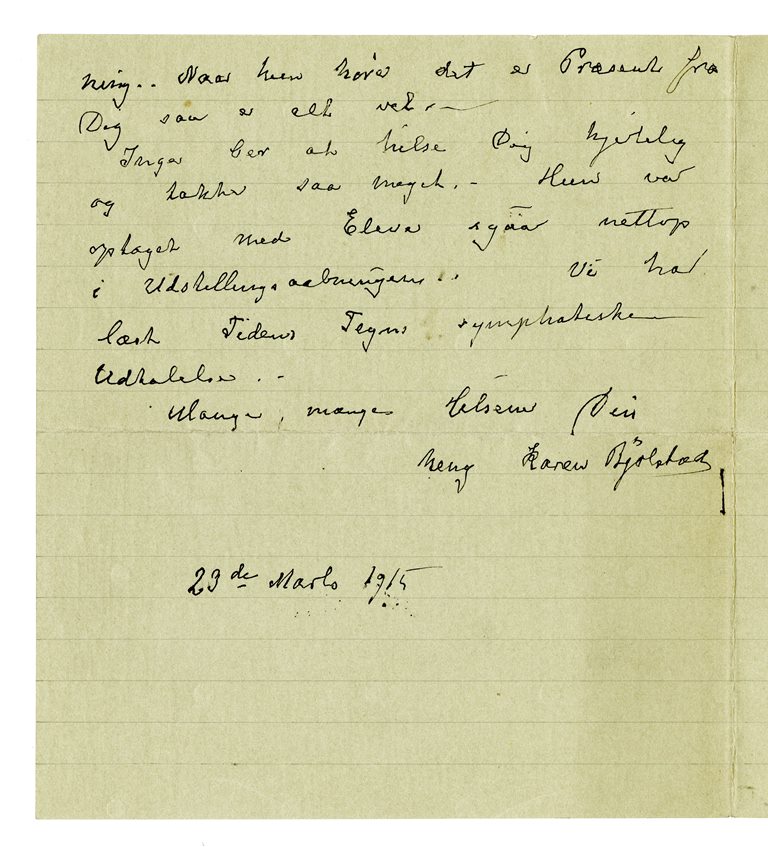 ning.. Naar hun hører det er Præsent fra
Dig saa er alt vel. —
Inga ber at hilse Dig hjertelig
og takke saa meget. – Hun var
optaget med Eleve igaar nettop
i Udstillingsaabningens..  Vi har
læst Tidens Tegns symphatiske
Udtalelse. –
Mange, mange Hilsene Din
heng Karen Bjølstad
23de Marts 1915